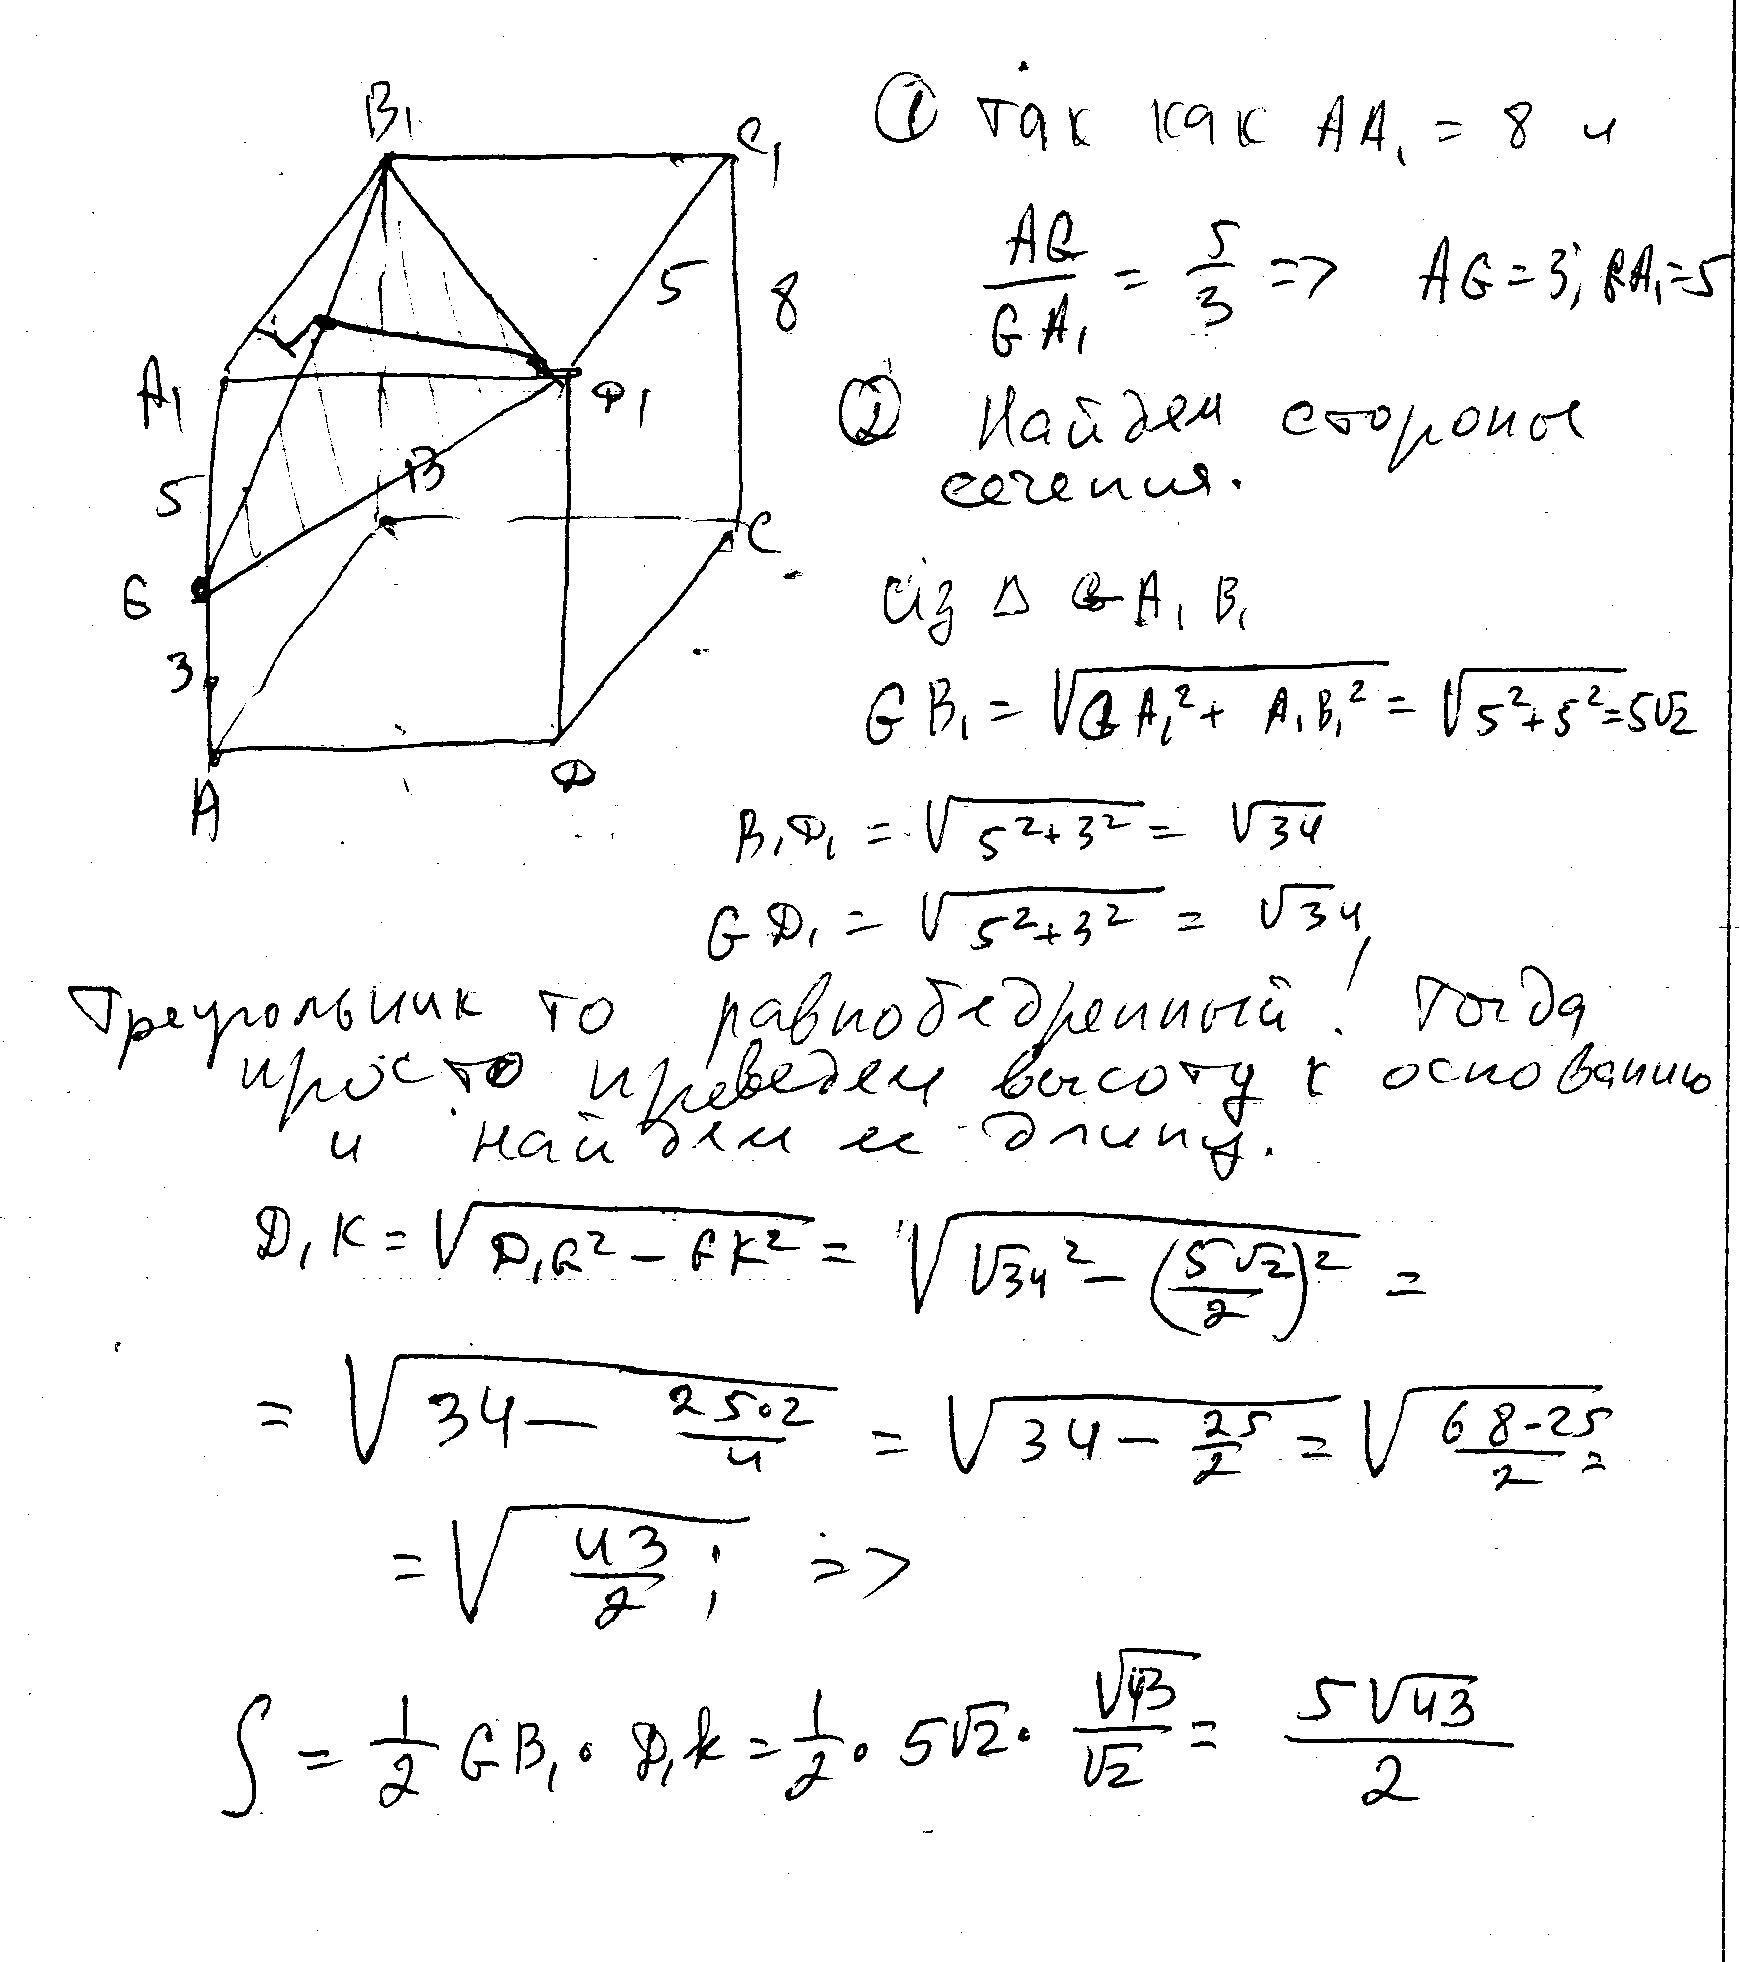 B₁
C₁
A₁
D₁
5
8
5
B
C
G
3
A
D
① Так как AA₁ = 8 и
AG/GA₁ = 5/3 => AG = 3; GA₁ = 5
② Найдем стороны
сечения.
Из Δ GA₁B₁
GB₁ = √(GA₁² + A₁B₁²) = √(5² + 5²) = 5√2
B₁D₁ = √(5² + 3²) = √34
GD₁ = √(5² + 3²) = √34
Треугольник то равнобедренный! Тогда
просто проведем высоту к основанию
и найдем ее длину.
D₁K = √(D₁G² - GK²) = √(√34² - (5√2/2)²) =
= √(34 - 25·2/4) = √(34 - 25/2) = √((68-25)/2) =
= √(43/2); =>
S = 1/2 GB₁ · D₁K = 1/2 · 5√2 · √43/√2 = 5√43/2